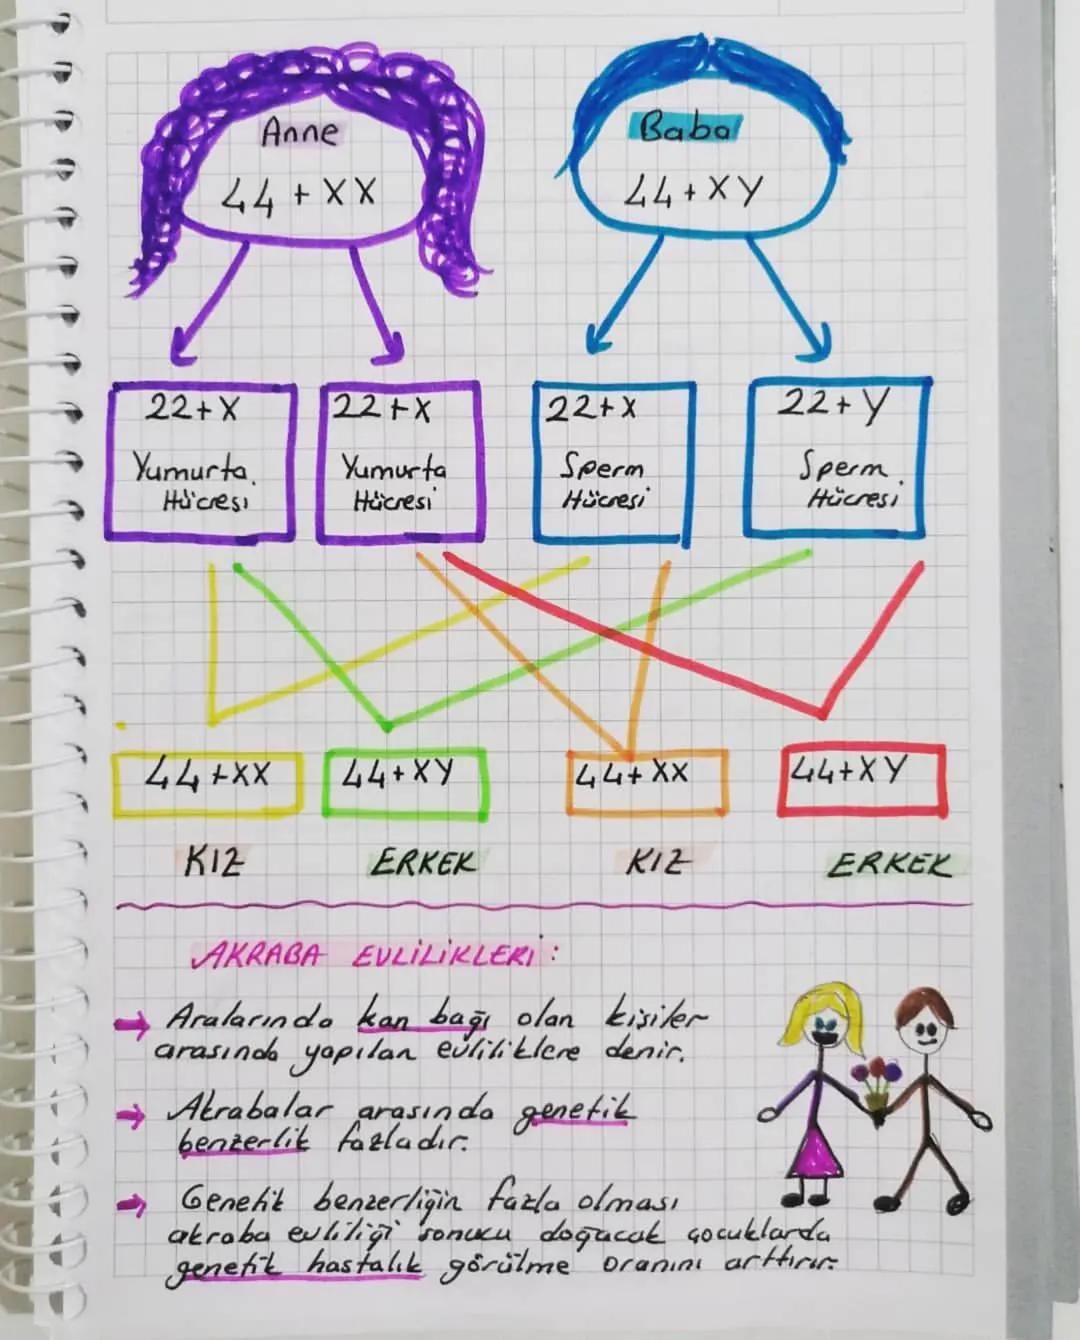 Anne
44 + XX
Baba
44 + XY
22+X
Yumurta
Hücresi
22+X
Yumurta
Hücresi
22+X
Sperm
Hücresi
22+Y
Sperm
Hücresi
44+XX
44+XY
44+XX
44+XY
KIZ
ERKEK
KIZ
ERKEK
AKRABA EVLİLİKLERİ:
→ Aralarında kan bağı olan kişiler
arasında yapılan evliliklere denir.
→ Akrabalar arasında genetik
benzerlik fazladır.
→ Genetik benzerliğin fazla olması
akraba evliliği sonucu doğacak çocuklarda
genetik hastalık görülme oranını arttırır.